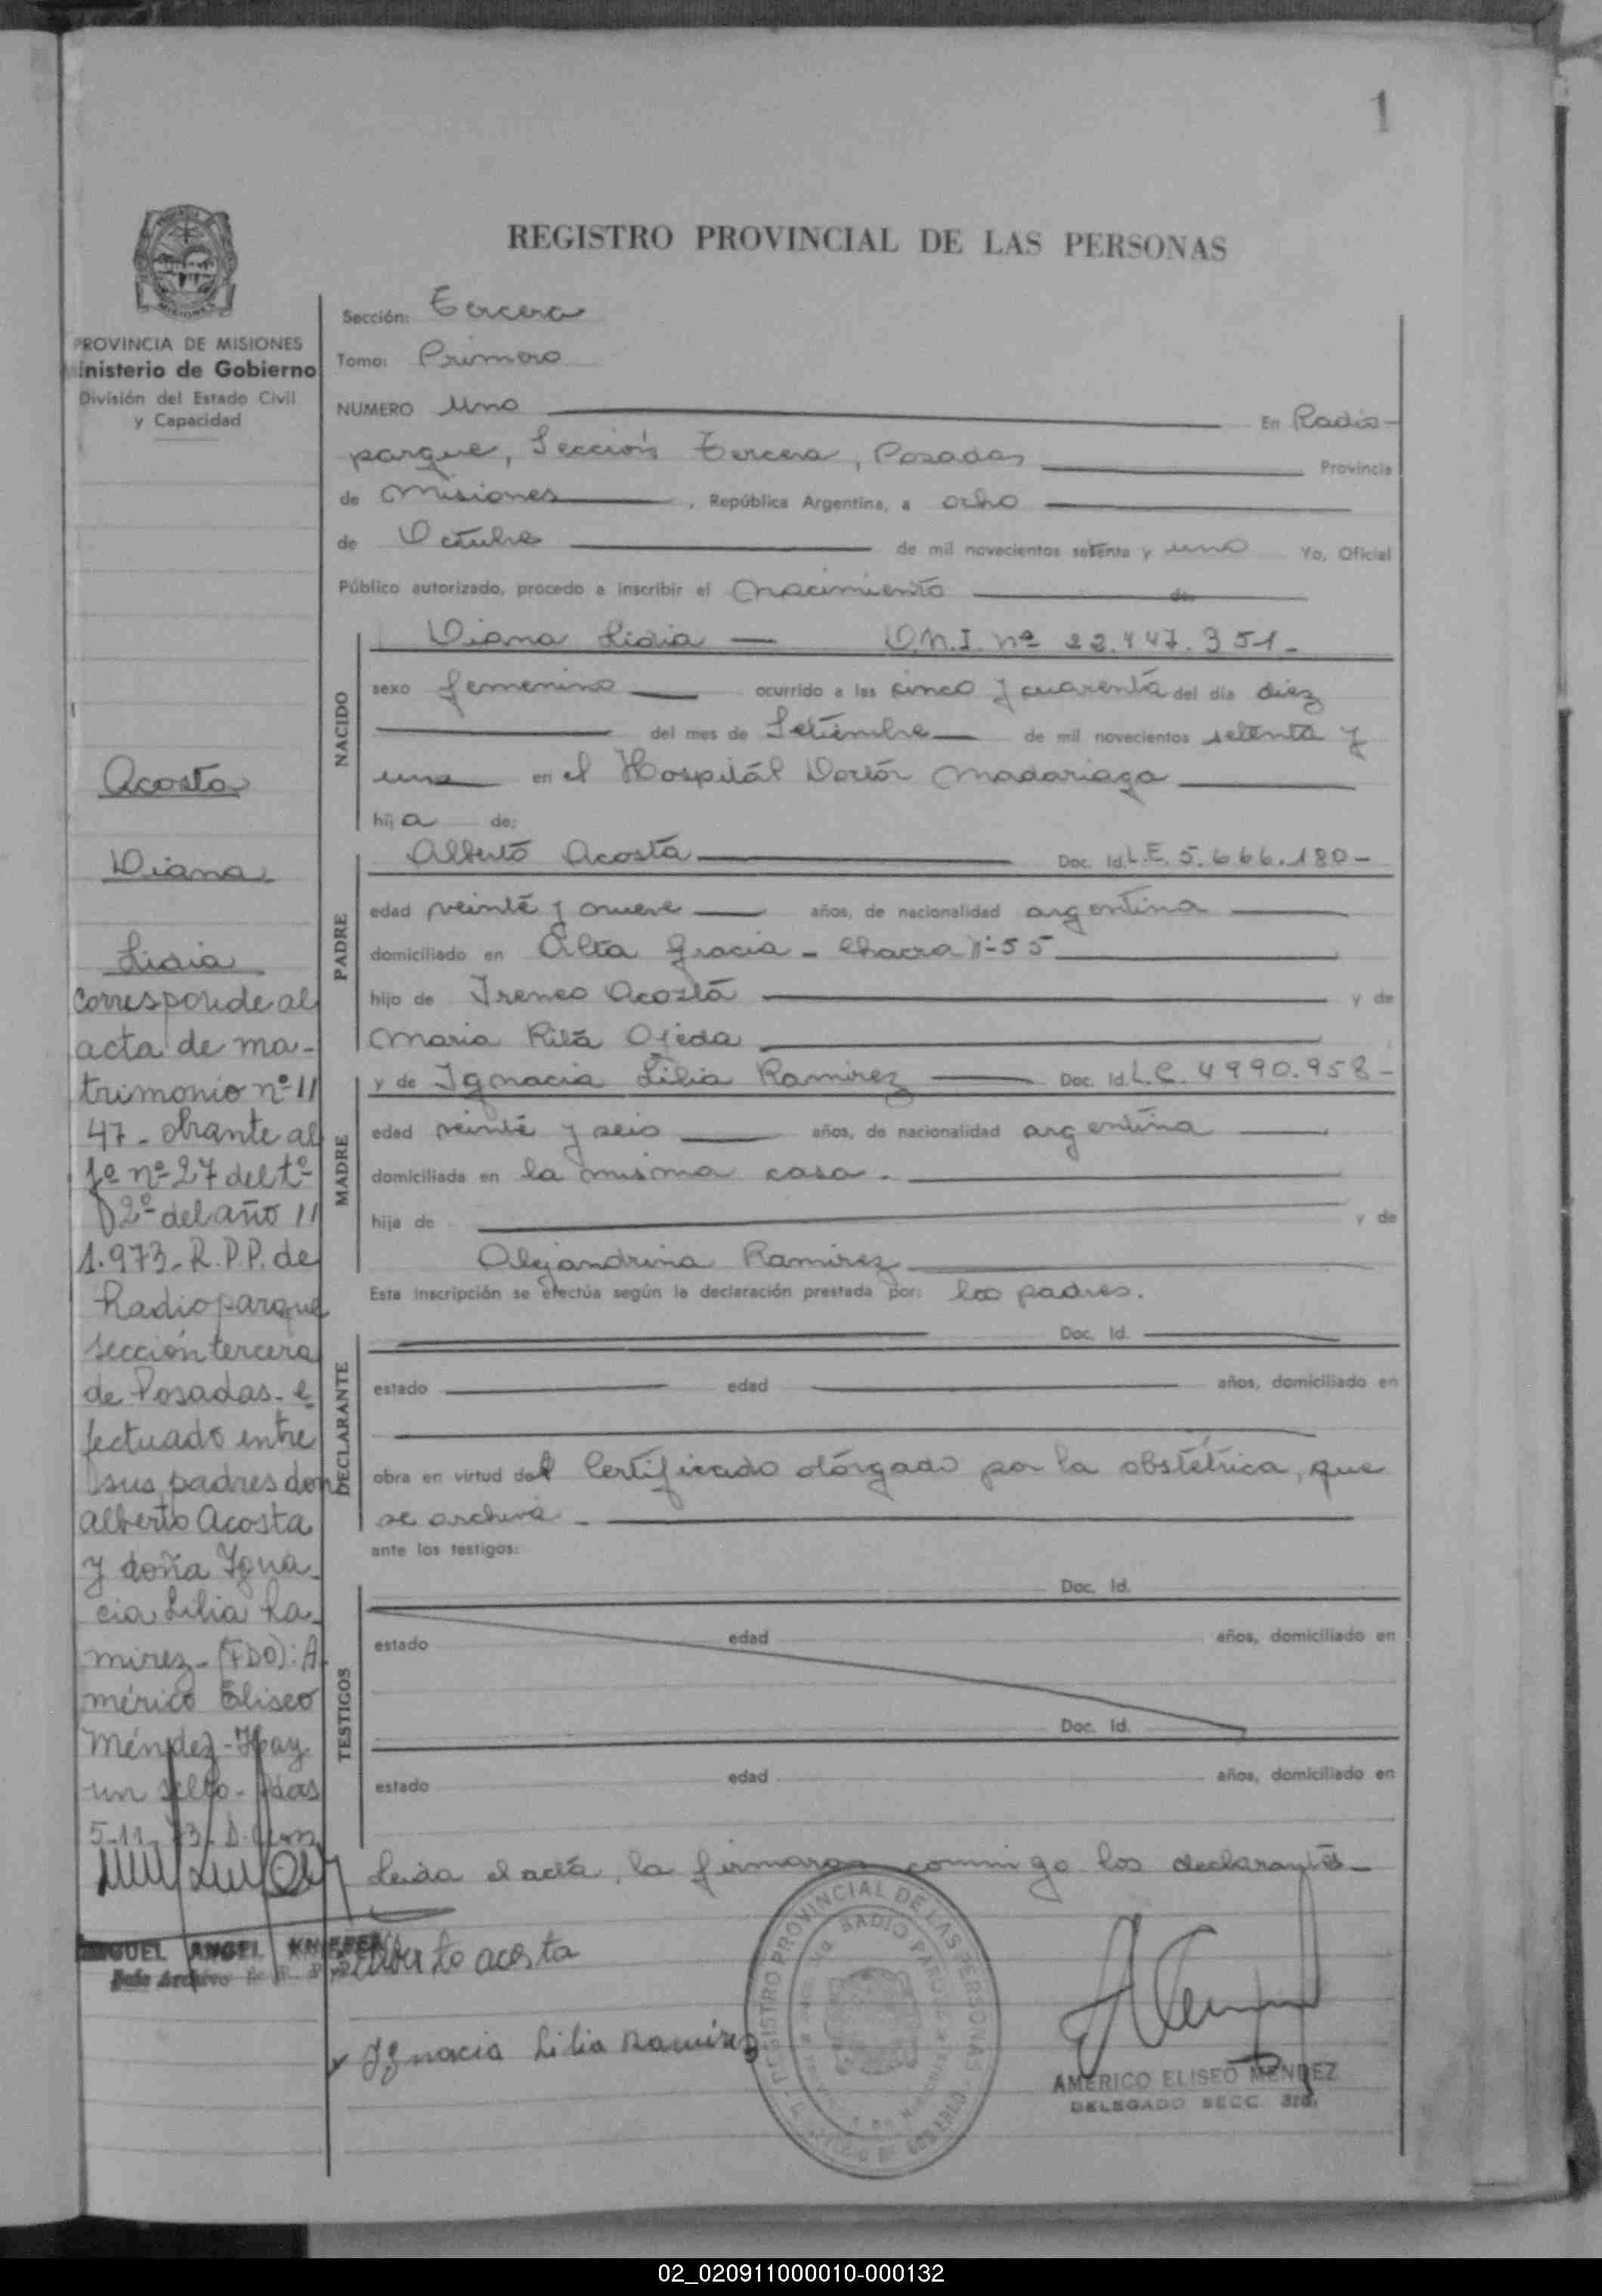 1
REGISTRO PROVINCIAL DE LAS PERSONAS
PROVINCIA DE MISIONES
Ministerio de Gobierno
División del Estado Civil
y Capacidad
Acosta
Diana
Lidia
Corresponde al
acta de ma-
trimonio nº 11
47 - obrante al
fº nº 27 del tº
2º del año 11
1.973 - R.P.P. de
Radioparque
sección tercera
de Posadas - e
fectuado entre
sus padres don
Alberto Acosta
y doña Igna-
cia Lilia Ra-
mirez - (FDO): A-
mérico Eliseo
Méndez - Hay
un sello - Pdas
5-11-73
MIGUEL ANGEL
Jefe Archivo
Sección: Tercera
Tomo: Primero
NUMERO Uno En Radio-
parque, Sección Tercera, Posadas Provincia
de Misiones, República Argentina, a ocho
de Octubre de mil novecientos setenta y uno Yo, Oficial
Público autorizado, procedo a inscribir el nacimiento de
Diana Lidia — D.N.I. nº 22.447.351-
NACIDO
sexo femenino ocurrido a las cinco y cuarenta del día diez
del mes de Setiembre de mil novecientos setenta y
uno en el Hospitál Doctór Madariaga
hija de:
PADRE
Alberto Acosta Doc. Id. L.E. 5.666.180-
edad veinte y nueve años, de nacionalidad argentina
domiciliado en Alta Gracia - Chacra nº 55
hijo de Ireneo Acosta y de
Maria Rita Ojeda
MADRE
y de Ignacia Lilia Ramirez Doc. Id. L.C. 4990.958-
edad veinte y seis años, de nacionalidad argentina
domiciliada en la misma casa.
hija de y de
Alejandrina Ramirez
Esta inscripción se efectúa según la declaración prestada por: los padres.
DECLARANTE
Doc. Id.
estado edad años, domiciliado en
obra en virtud del Certificado otórgado por la obstétrica, que
se archiva -
ante los testigos:
TESTIGOS
Doc. Id.
estado edad años, domiciliado en
Doc. Id.
estado edad años, domiciliado en
Leida el acta, la firmaron conmigo los declarantes-
Alberto acosta
Ignacia Lilia Ramirez
REGISTRO PROVINCIAL DE LAS PERSONAS
RADIO PARQUE
AMERICO ELISEO MENDEZ
DELEGADO SECC. 3ra.
02_020911000010-000132